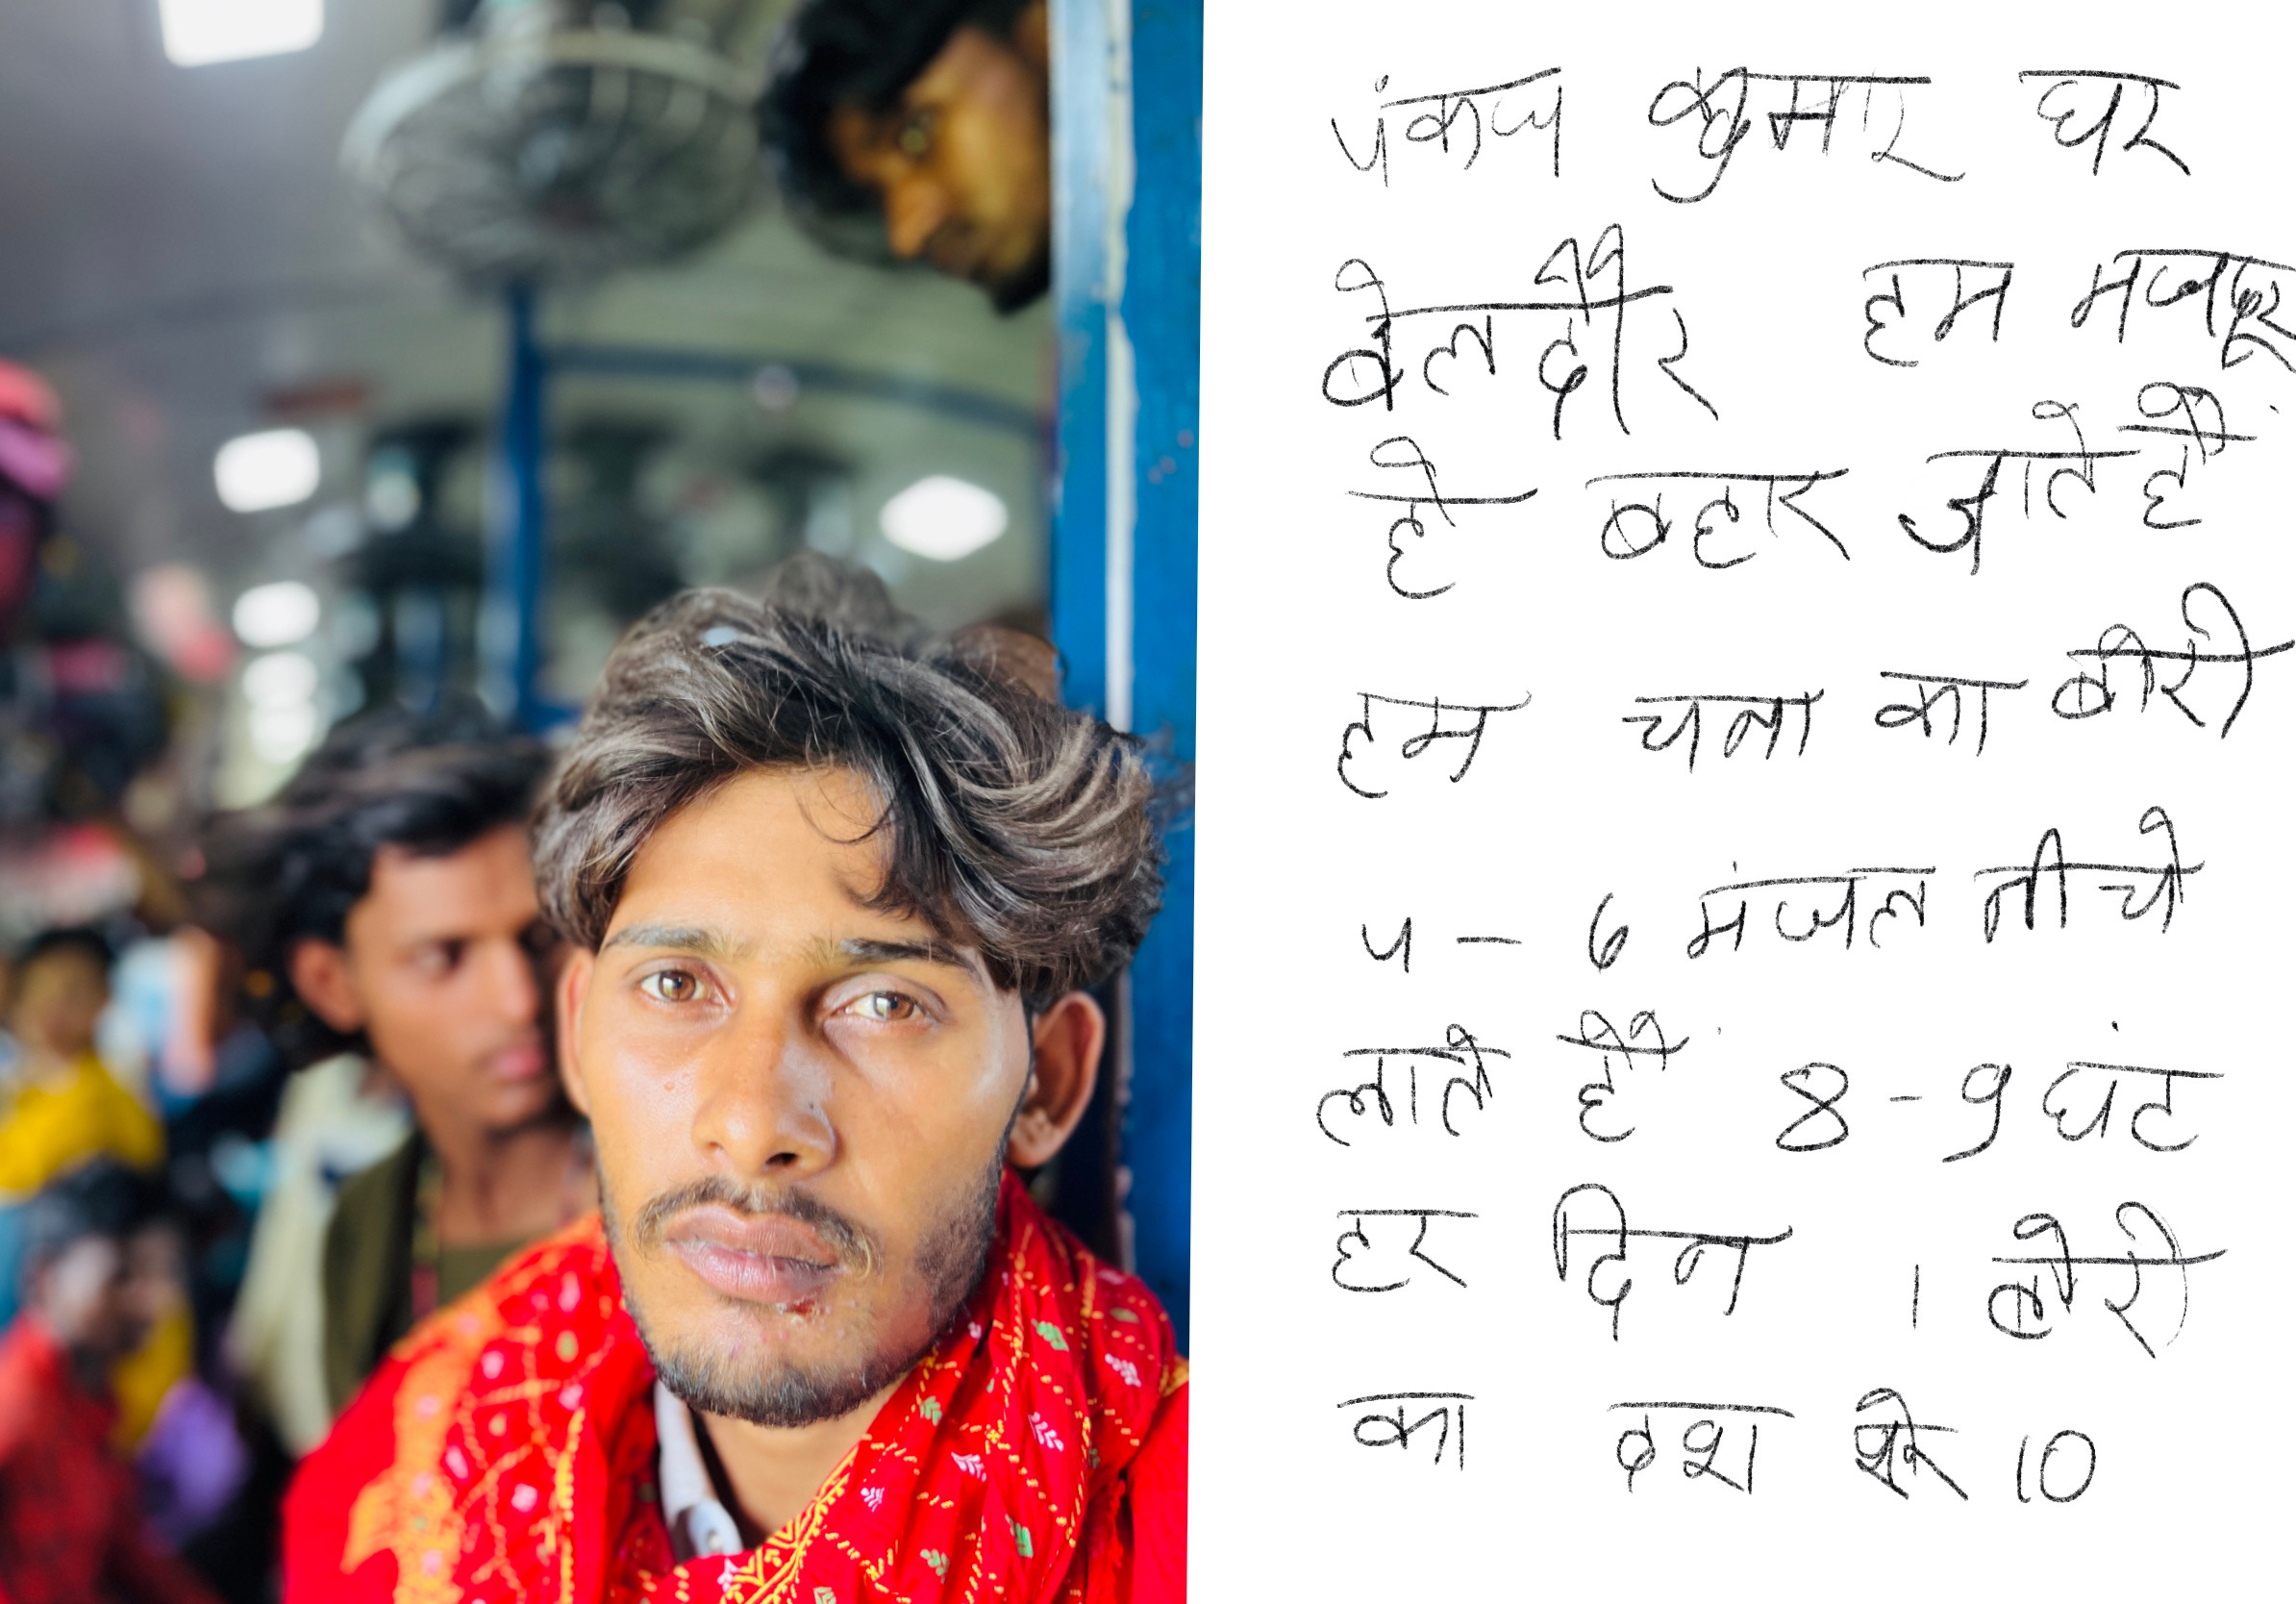 पंकज कुमार घर
बेलदौर हम मजदूर
है बहार जाते हैं
हम चना का बोरी
५ - 6 मंजल नीचे
लाते हैं 8 - 9 घंट
हर दिन 1 बोरी
का दश 10